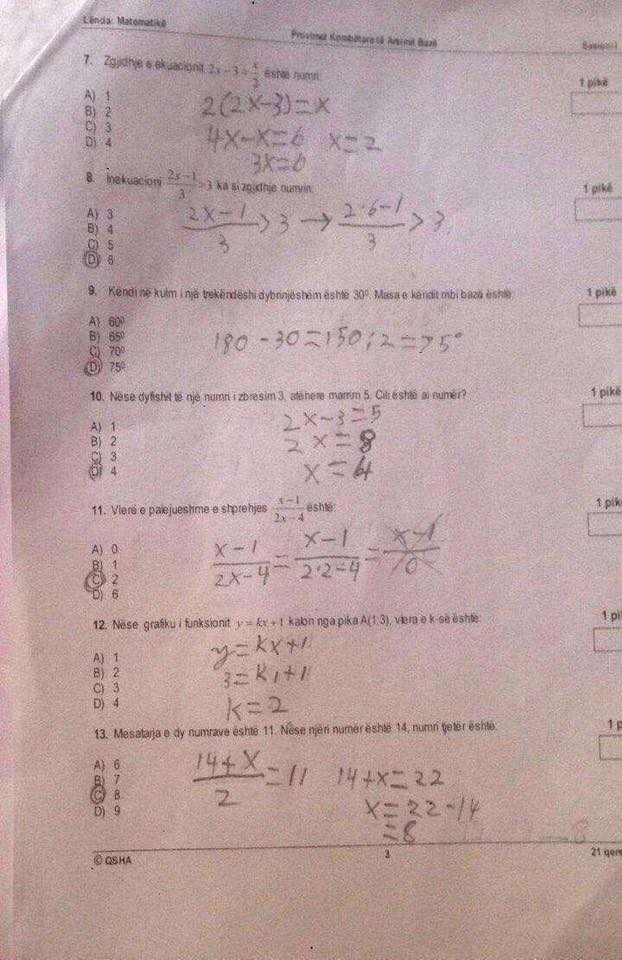 Lënda: Matematikë
Provimet Kombëtare të Arsimit Bazë
Sesioni I
7. Zgjidhje e ekuacionit 2x − 3 = x/2 është numri
1 pikë
A) 1
B) 2
C) 3
D) 4
2(2x-3)=x
4x-x=6 x=2
3x=6
8. Inekuacioni (2x − 1)/3 > 3 ka si zgjidhje numrin:
1 pikë
A) 3
B) 4
C) 5
D) 6
(2x-1)/3 > 3 → (2·6-1)/3 > 3
9. Këndi në kulm i një trekëndëshi dybrinjëshëm është 30⁰. Masa e këndit mbi bazë është:
1 pikë
A) 60⁰
B) 65⁰
C) 70⁰
D) 75⁰
180-30=150:2=75°
10. Nëse dyfishit të një numri i zbresim 3, atëhere marrim 5. Cili është ai numër?
1 pikë
A) 1
B) 2
C) 3
D) 4
2x-3=5
2x=8
x=4
11. Vlerë e palejueshme e shprehjes (x−1)/(2x−4) është:
1 pik
A) 0
B) 1
C) 2
D) 6
(x-1)/(2x-4) = (x-1)/(2·2-4) = (x-1)/0
12. Nëse grafiku i funksionit y = kx + 1 kalon nga pika A(1;3), vlera e k-së është:
1 pi
A) 1
B) 2
C) 3
D) 4
y=kx+1
3=k1+1
k=2
13. Mesatarja e dy numrave është 11. Nëse njëri numër është 14, numri tjetër është:
1 p
A) 6
B) 7
C) 8
D) 9
(14+x)/2 = 11 14+x=22
x=22-14
=8
8
© QSHA
3
21 qers